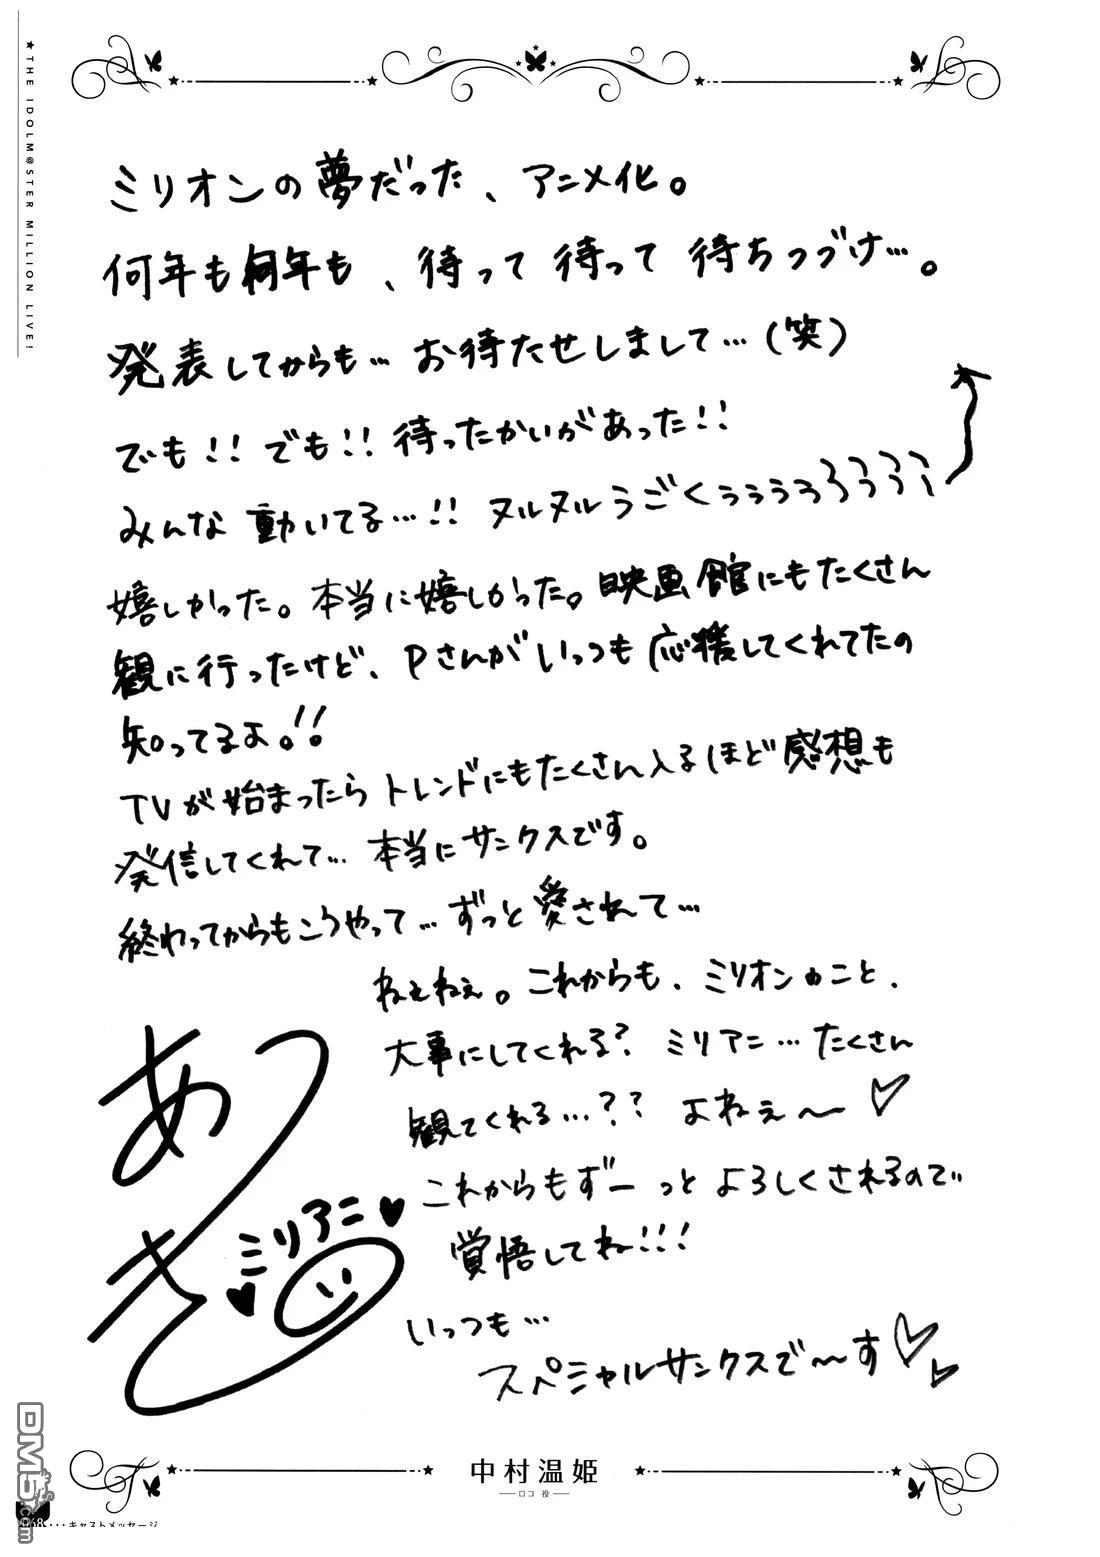 ★THE IDOLM@STER MILLION LIVE!
ミリオンの夢だった、アニメ化。
何年も何年も、待って 待って 待ちつづけ…。
発表してからも…お待たせしまして…(笑)
でも!! でも!! 待ったかいがあった!!
みんな 動いてる…!! ヌルヌルうごくぅぅぅぅぅぅぅぅ
嬉しかった。本当に嬉しかった。映画館にもたくさん
観に行ったけど、Pさんがいっつも応援してくれてたの
知ってるよ。!!
TVが始まったらトレンドにもたくさん入るほど感想も
発信してくれて… 本当にサンクスです。
終わってからもこうやって…ずっと愛されて…
ねぇねぇ。これからも、ミリオンのこと、
大事にしてくれる? ミリアニ…たくさん
観てくれる…?? よねぇ〜♡
これからもずーっと よろしくされるので
覚悟してね!!!
いっつも…
スペシャルサンクスで〜す♡♡
あき
ミリアニ
中村温姫
ロコ 役
068・・・キャストメッセージ
DM5.com